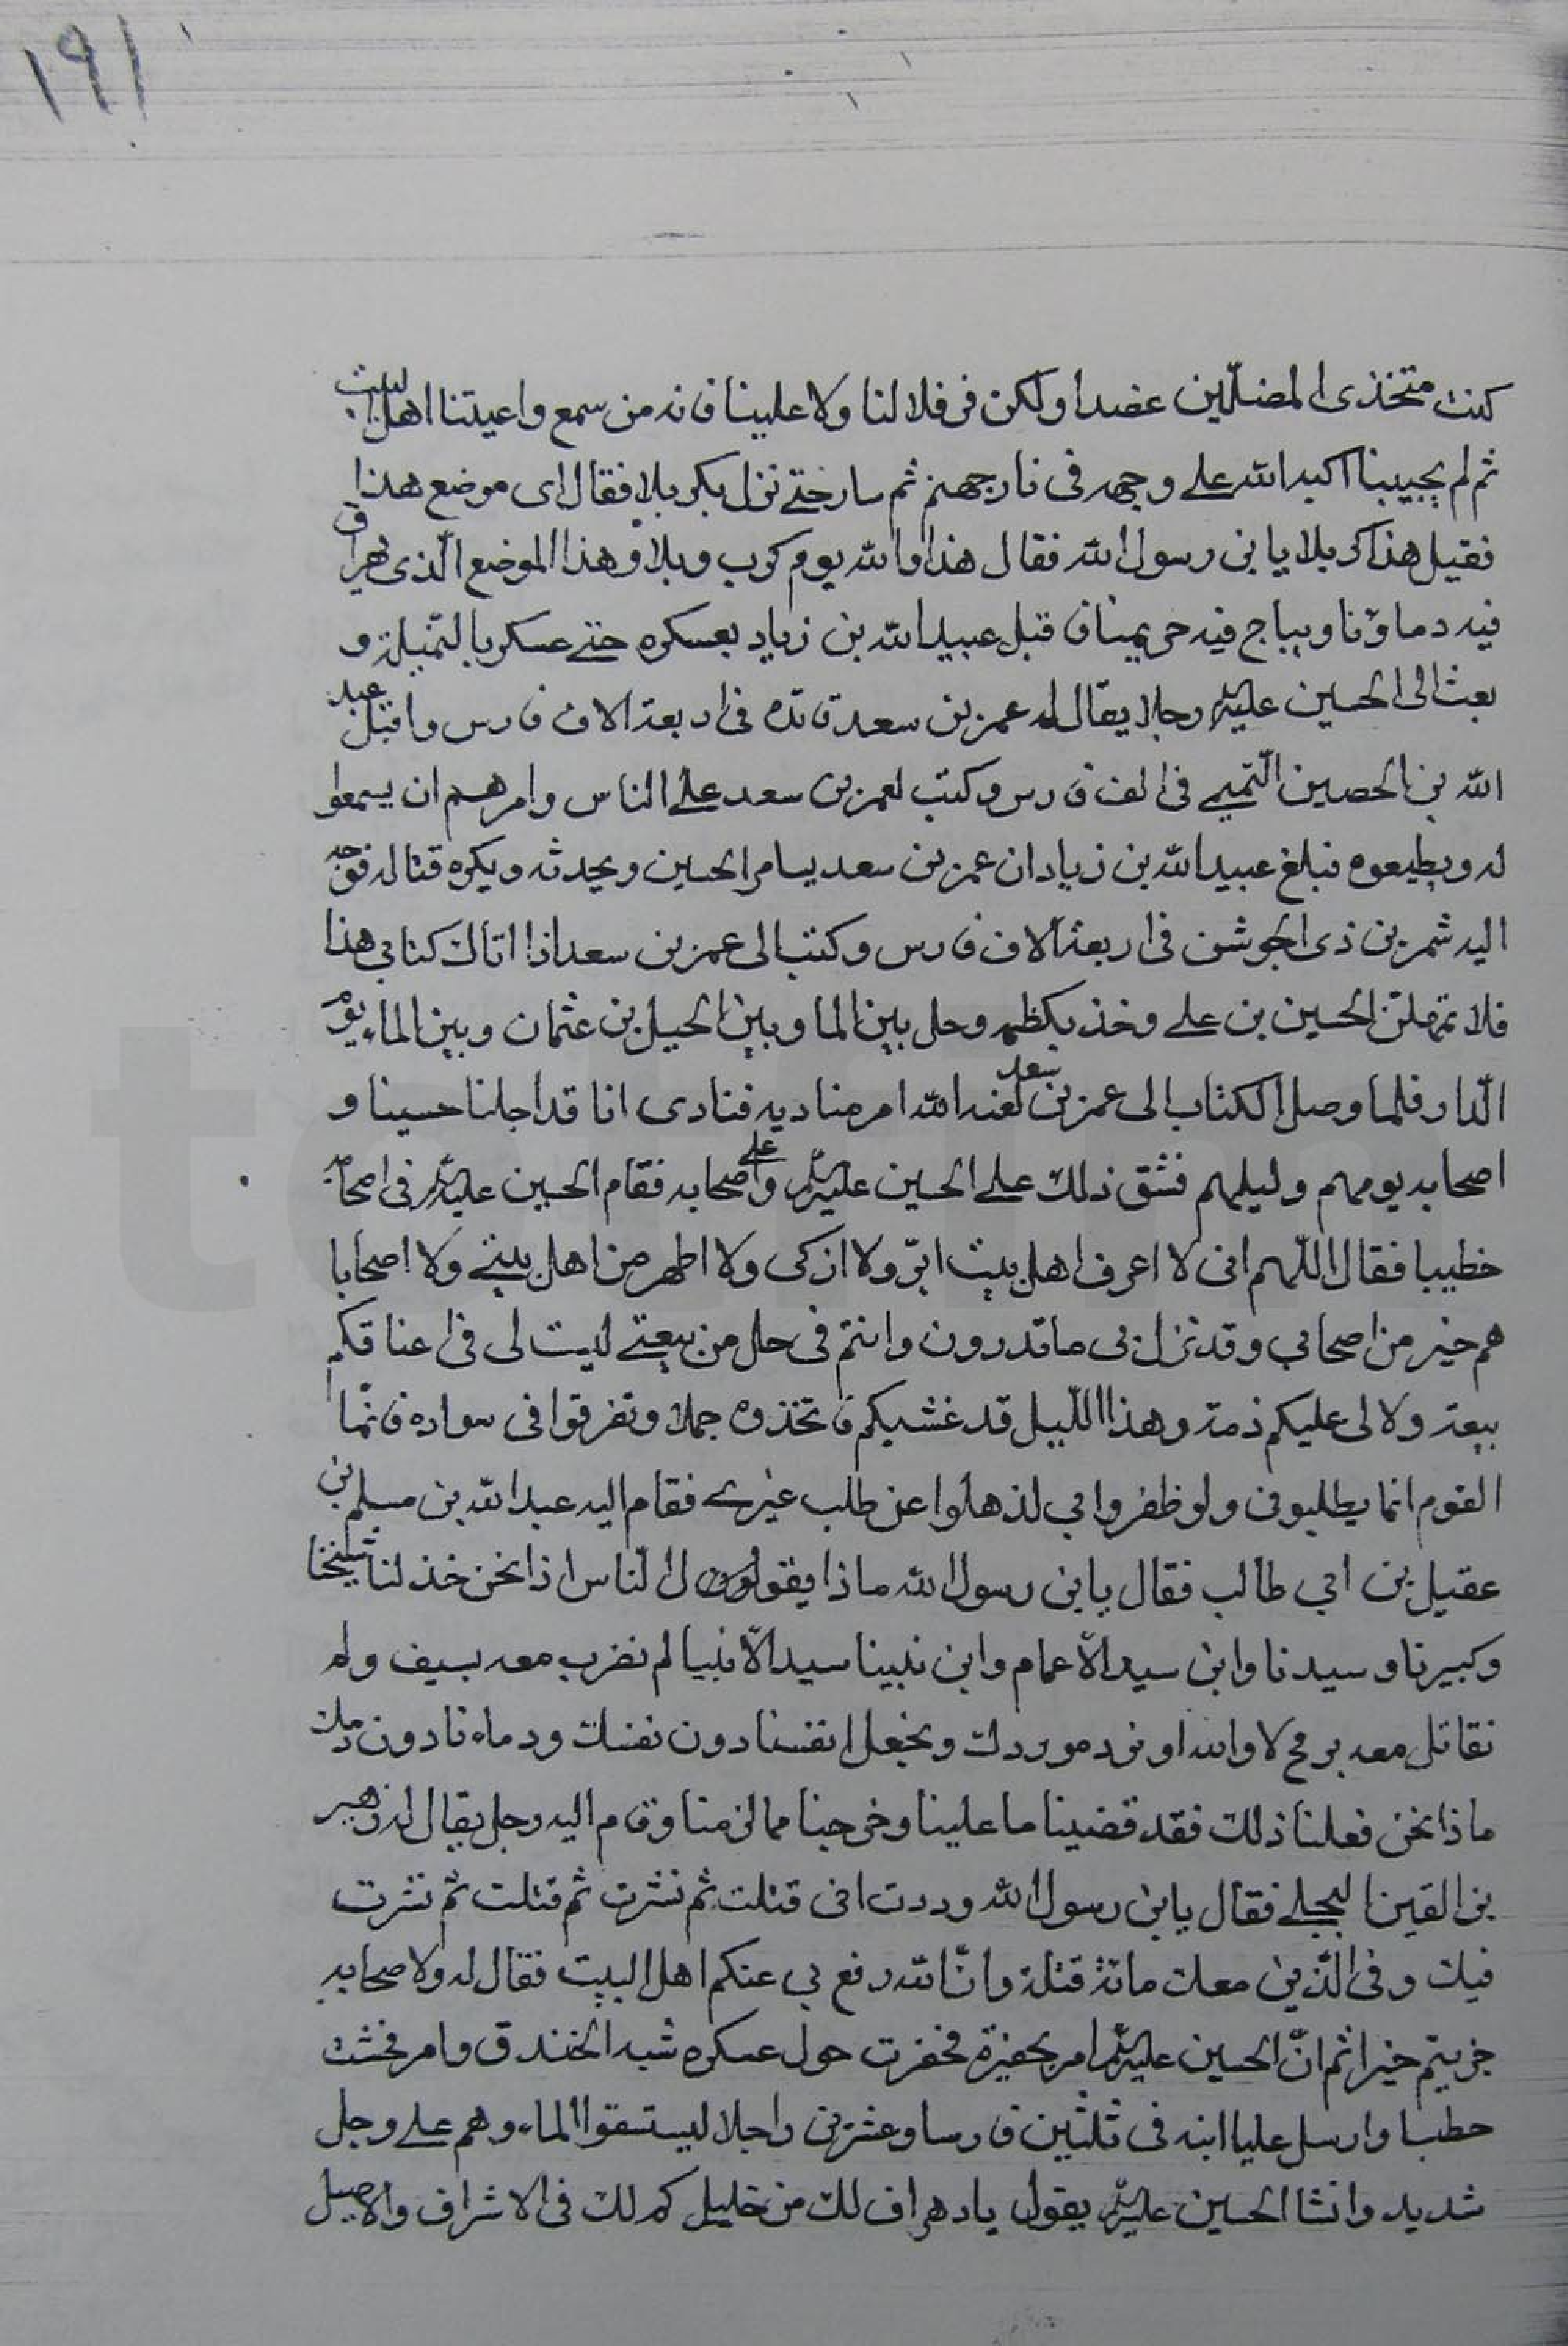 ١٩١
كنت متخذى المضلّين عضدا ولكن فر فلا لنا ولا علينا فانه من سمع واعيتنا اهل البيت
ثم لم يجيبنا اكبه الله على وجهه فى نار جهنم ثم سار حتى نزل بكربلا فقال اى موضع هذا
فقيل هذا كربلا يا بن رسول الله فقال هذا والله يوم كرب وبلا وهذا الموضع الّذى يهراق
فيه دماؤنا ويباح فيه حريمنا فاقبل عبيد الله بن زياد بعسكره حتى عسكر بالنّخيلة و
بعث الى الحسين عليه السلام رجلا يقال له عمر بن سعد قائده فى اربعة الاف فارس واقبل عبد
الله بن الحصين التّميمى فى الف فارس وكتب لعمر بن سعد على الناس وامرهم ان يسمعوا
له ويطيعوه فبلغ عبيد الله بن زياد ان عمر بن سعد يسامر الحسين ويحدثه ويكره قتاله فوجه
اليه شمر بن ذى الجوشن فى اربعة الاف فارس وكتب الى عمر بن سعد اذا اتاك كتابى هذا
فلا تمهلنّ الحسين بن على وخذ بكظمه وحل بين الما وبين الحيل بن عثمان وبين الماء يوم
الدّار فلما وصل الكتاب الى عمر بن سعد لعنه الله امر مناديه فنادى انا قد اجلنا حسينا و
اصحابه يومهم وليلهم فشق ذلك على الحسين عليه السلام وعلى اصحابه فقام الحسين عليه السلام فى اصحابه
خطيبا فقال اللّهم انى لا اعرف اهل بيت ابرّ ولا ازكى ولا اطهر من اهل بيتى ولا اصحابا
هم خير من اصحابى وقد نزل بى ما قدرون وانتم فى حل من بيعتى ليست لى فى اعناقكم
بيعة ولا لى عليكم ذمة وهذا اللّيل قد غشيكم فاتخذوه جملا وتفرقوا فى سواده فانّما
القوم انما يطلبونى ولو ظفروا بى لذهلوا عن طلب غيرى فقام اليه عبد الله بن مسلم بن
عقيل بن ابى طالب فقال يا بن رسول الله ماذا يقولون ال النّاس اذا نحن خذلنا شيخنا
وكبيرنا وسيدنا وابن سيد الاعمام وابن نبينا سيد الانبيا لم نضرب معه بسيف ولم
نقاتل معه برمح لا والله او نرد موردك ونجعل انفسنا دون نفسك ودماءنا دون دمك
ماذا نحن فعلنا ذلك فقد قضينا ما علينا وخرجنا مما لزمنا وقام اليه رجل يقال له زهير
بن القين البجلى فقال يا بن رسول الله وددت انى قتلت ثم نشرت ثم قتلت ثم نشرت
فيك وفى الّذين معك مائة قتلة وانّ الله دفع بى عنكم اهل البيت فقال له ولاصحابه
جزيتم خيرا ثم انّ الحسين عليه السلام امر بحفيرة فحفرت حول عسكره شبه الخندق وامر فحشت
حطبا وارسل عليا ابنه فى ثلثين فارسا وعشرين راجلا ليستسقوا الماء وهم على وجل
شديد وانشا الحسين عليه السلام يقول يا دهر اف لك من خليل كم لك فى الاشراف والاصيل